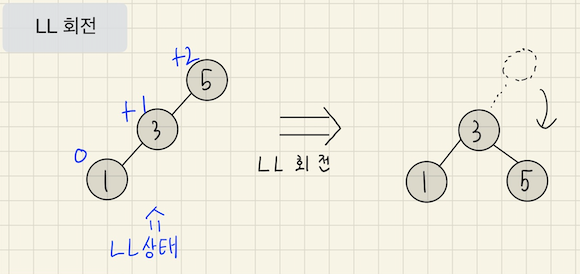 LL 회전
+2
5
+1
3
0
1
LL상태
LL 회전
3
1
5